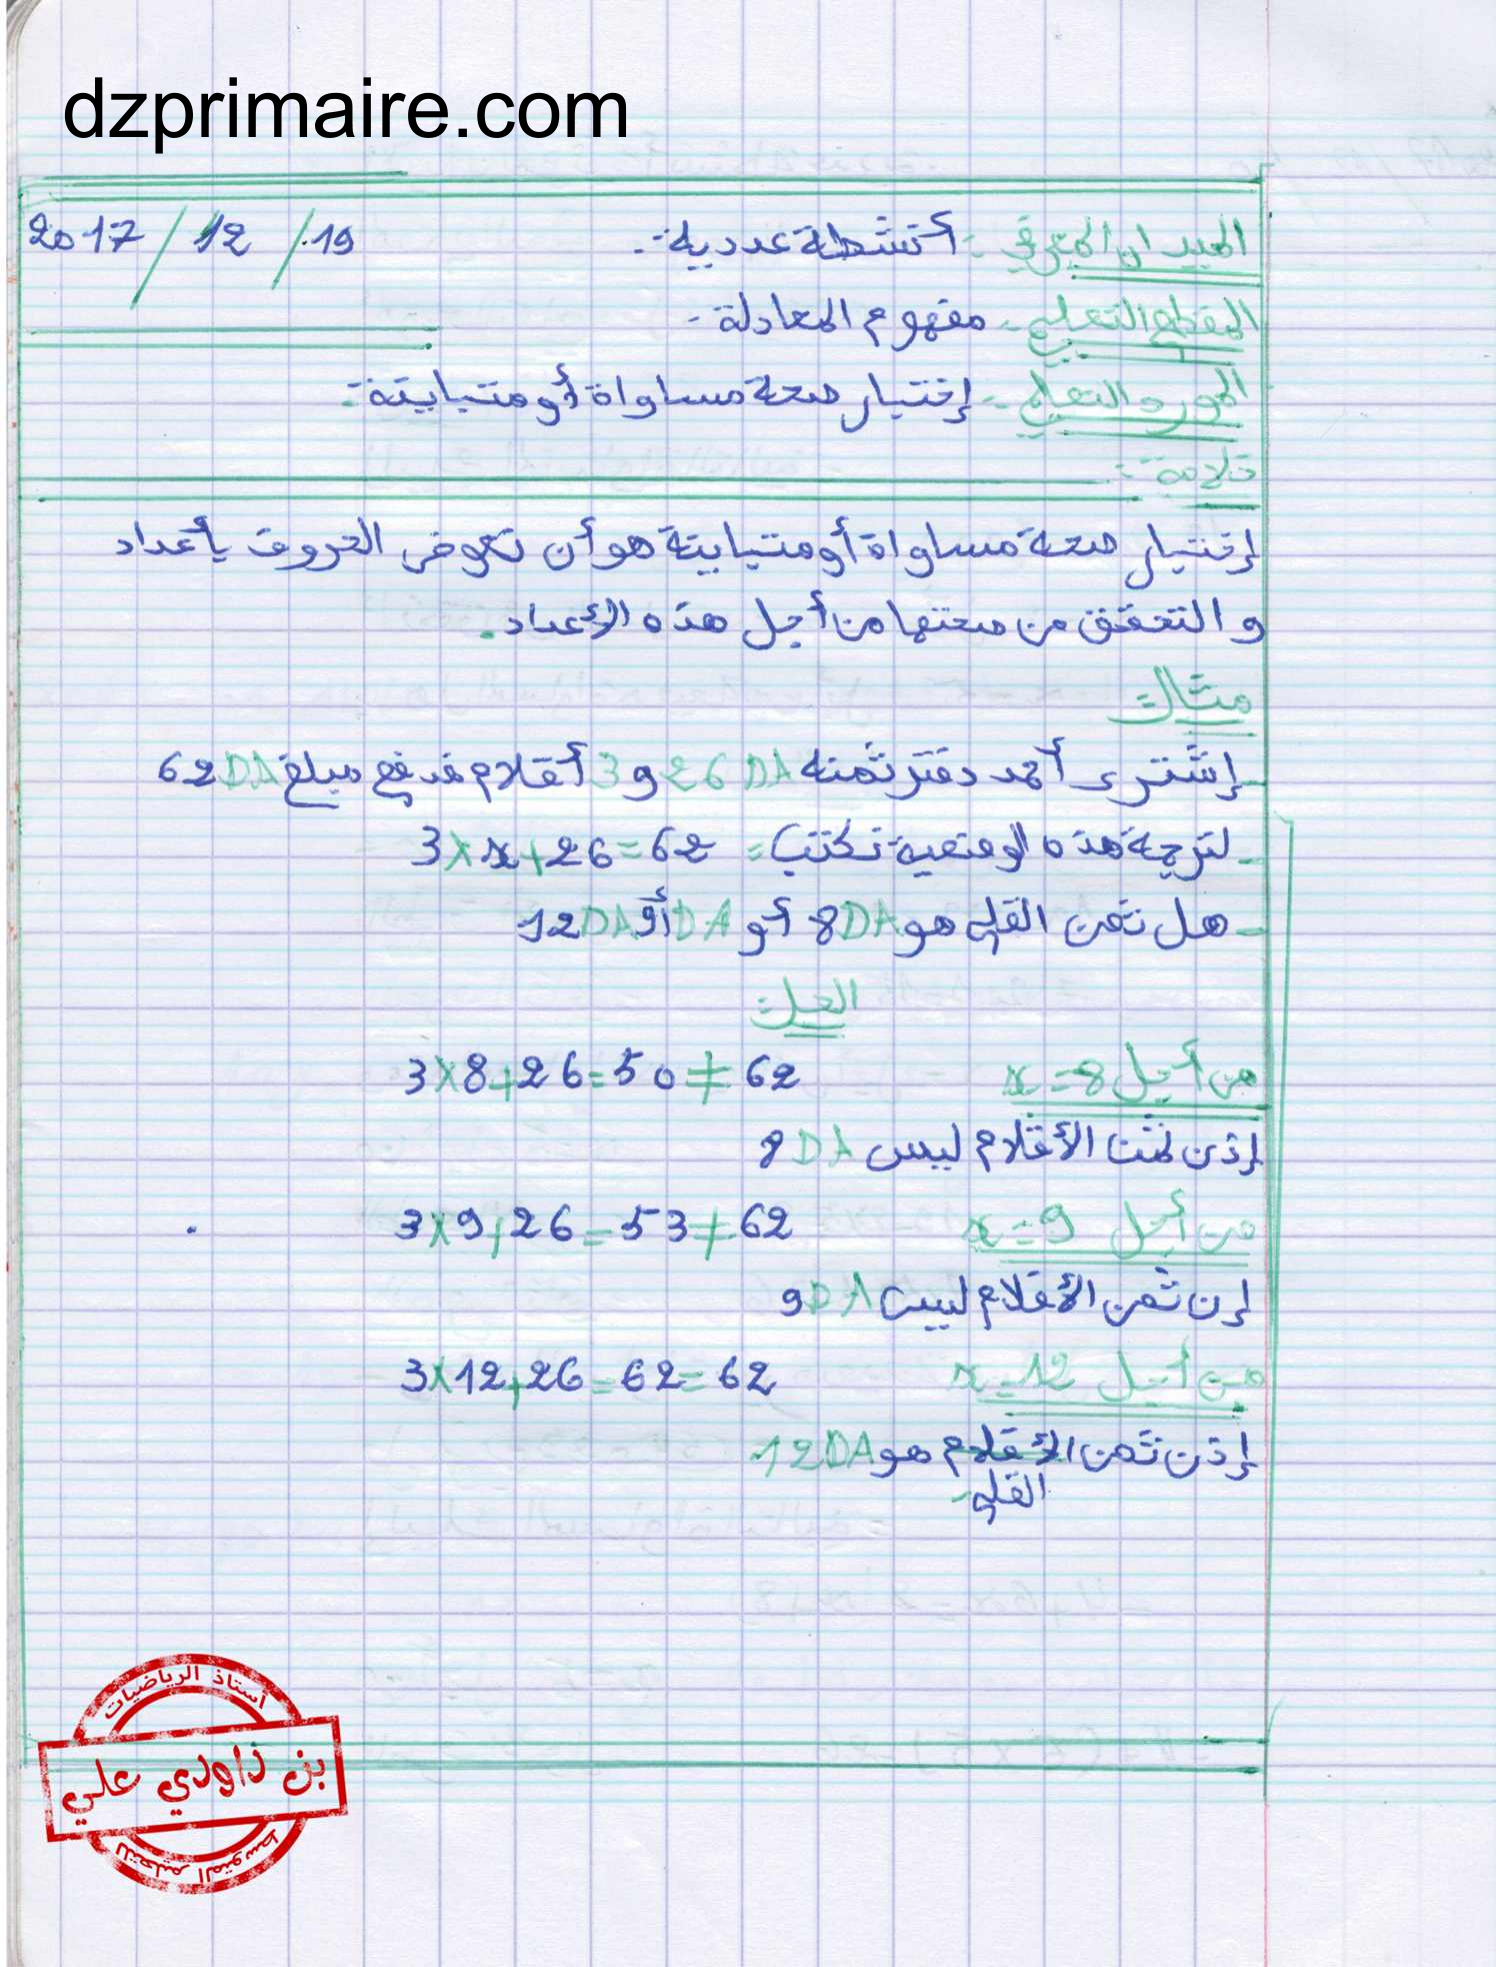 dzprimaire.com
الميدان المعرفي :- أنشطة عددية :- 2017 / 12 / 19
المقطع التعلمي :- مفهوم المعادلة -
المورد التعلمي :- إختبار صحة مساواة أو متباينة :-
خلاصة :-
إختبار صحة مساواة أو متباينة هو أن نعوض الحروف بأعداد
و التحقق من صحتها من أجل هذه الأعداد.
مثال :
- إشترى أحمد دفتر ثمنه 26 DA و 3 أقلام فدفع مبلغ 62DA
- لترجمة هذه الوضعية نكتب : 3 × x + 26 = 62
- هل ثمن القلم هو 8DA أو 9DA أو 12DA
الحل :
من أجل x = 8 3 × 8 + 26 = 50 ≠ 62
إذن ثمن الأقلام ليس 8 DA
من أجل x = 9 3 × 9 + 26 = 53 ≠ 62
إن ثمن الأقلام ليس 9DA
من أجل x = 12 3 × 12 + 26 = 62 = 62
إذن ثمن الأقلام هو 12DA
القلم
أستاذ الرياضيات
بن داودي علي
للتعليم المتوسط